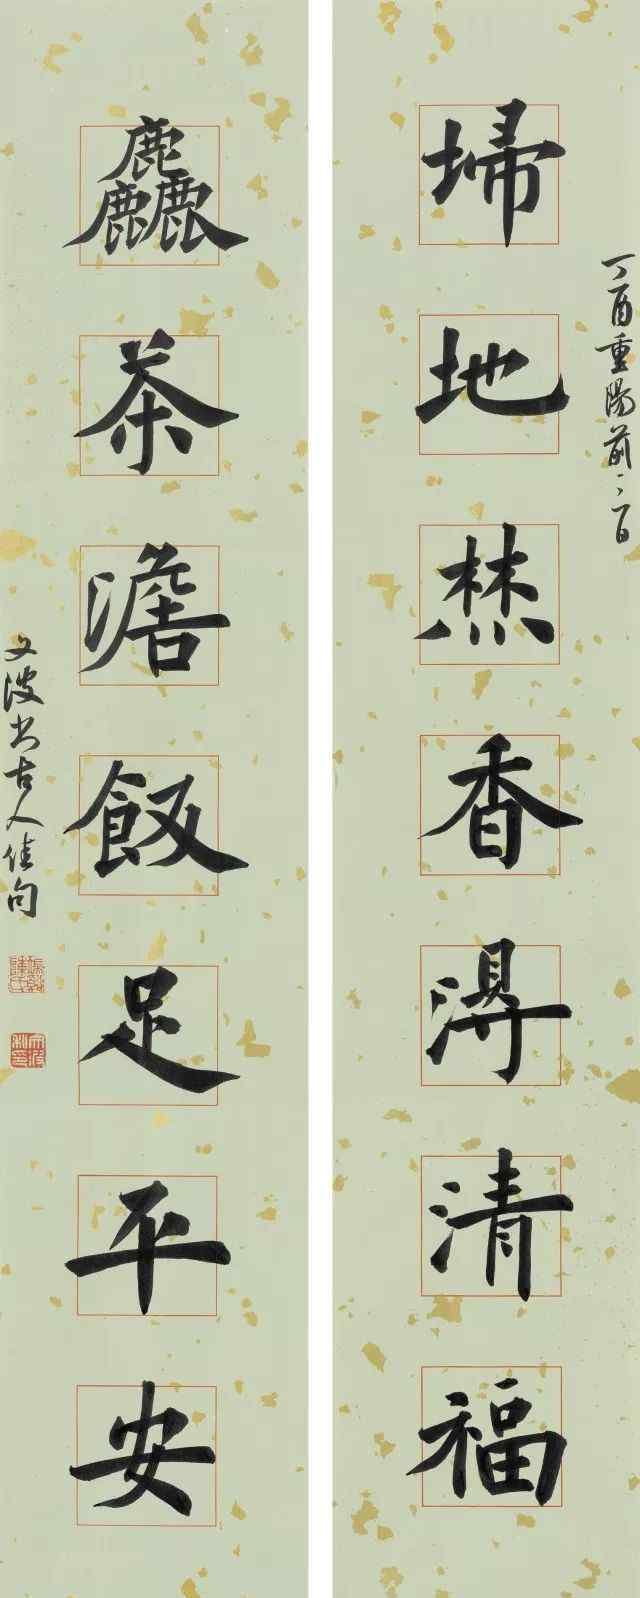 丁酉重陽前二日
埽地焚香淂清福
麤茶澹飯足平安
文波书古人佳句